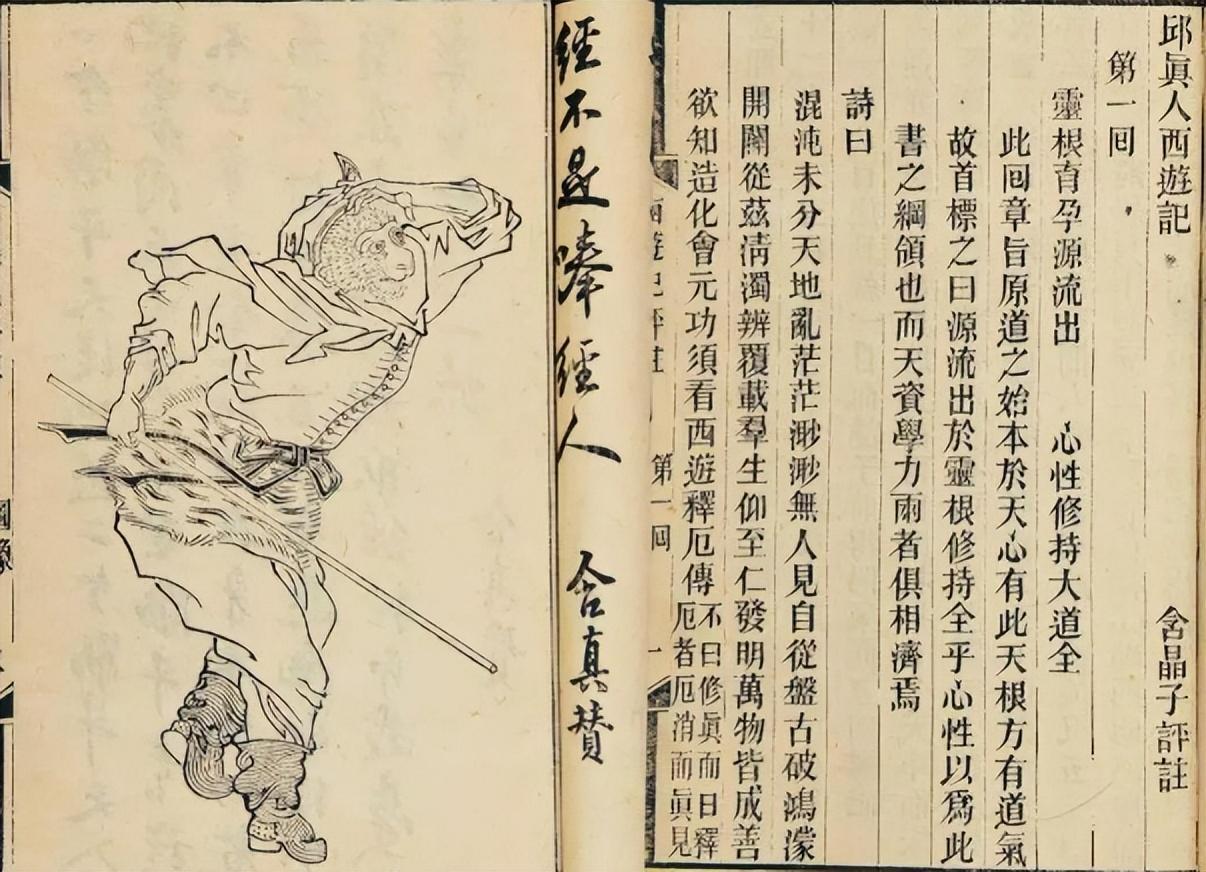 邱眞人西遊記 含晶子評註
第一囘
靈根育孕源流出 心性修持大道全
此囘章旨原道之始本於天心有此天根方有道氣
故首標之曰源流出於靈根修持全乎心性以爲此
書之綱領也而天資學力兩者俱相濟焉
詩曰
混沌未分天地亂茫茫渺渺無人見自從盤古破鴻濛
開闢從茲淸濁辨覆載羣生仰至仁發明萬物皆成善
欲知造化會元功須看西遊釋厄傳
不曰修眞而曰釋
厄者厄消而眞見
西遊記評註 第一囘 一
經不是唪經人 含真贊
圖像